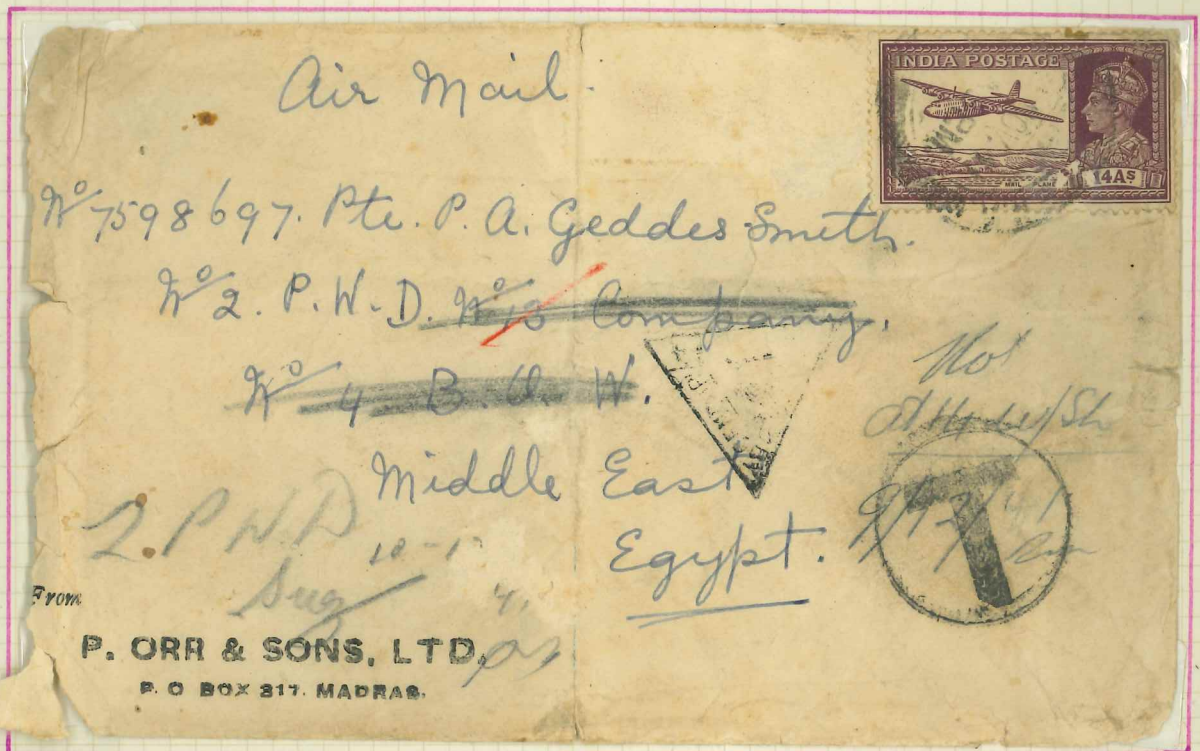 Air Mail.
INDIA POSTAGE
MAIL PLANE
14As.
No 7598697. Pte. P. A. Geddes-Smith.
No 2. P.W.D. No 13 Company.
No 4 B.O.W.
Middle East
Egypt.
Not
9/12/41
T
2. P.W.D
Sug
From
P. ORR & SONS, LTD.
P. O BOX 317. MADRAS.